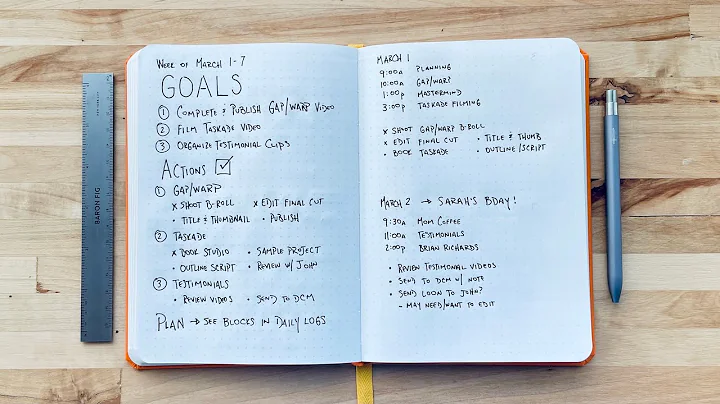 BARON FIG
WEEK OF MARCH 1-7
GOALS
① COMPLETE & PUBLISH GAP/WARP VIDEO
② FILM TASKADE VIDEO
③ ORGANIZE TESTIMONIAL CLIPS
ACTIONS ☑
① GAP/WARP
x SHOOT B-ROLL x EDIT FINAL CUT
• TITLE & THUMBNAIL • PUBLISH
② TASKADE
x BOOK STUDIO • SAMPLE PROJECT
• OUTLINE SCRIPT • REVIEW W/ JOHN
③ TESTIMONIALS
• REVIEW VIDEOS • SEND TO DCM
PLAN → SEE BLOCKS IN DAILY LOGS
MARCH 1
9:00A PLANNING
10:00A GAP/WARP
1:00P MASTERMIND
3:00P TASKADE FILMING
x SHOOT GAP/WARP B-ROLL
x EDIT FINAL CUT • TITLE & THUMB
• BOOK TASKADE • OUTLINE/SCRIPT
MARCH 2 → SARAH'S BDAY!
9:30A MOM COFFEE
11:00A TESTIMONIALS
2:00P BRIAN RICHARDS
• REVIEW TESTIMONIAL VIDEOS
• SEND TO DCM W/ NOTE
• SEND LOON TO JOHN?
- MAY NEED/WANT TO EDIT